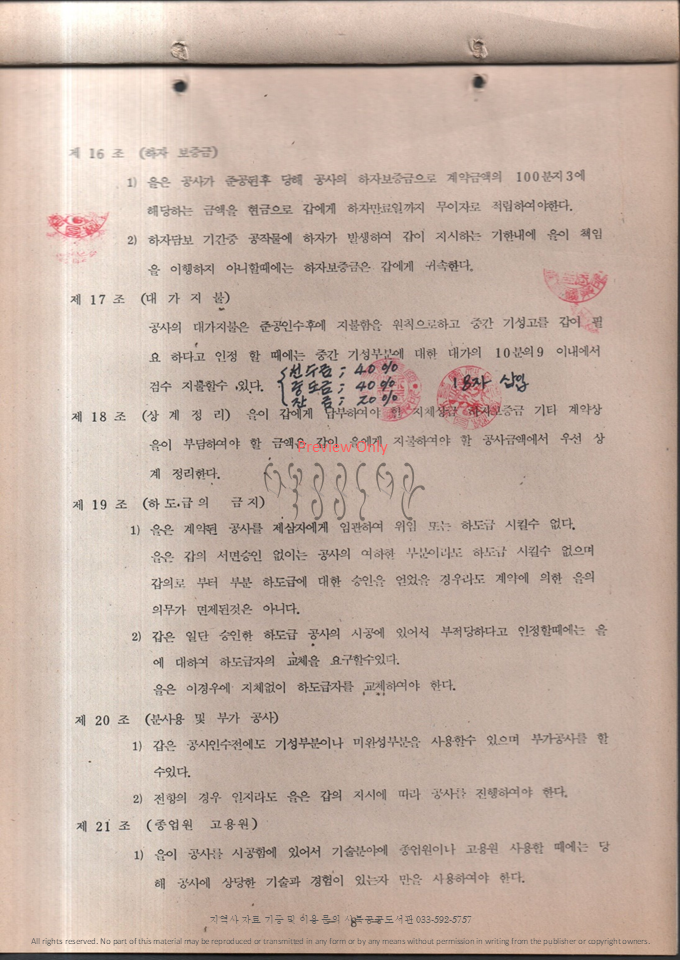 제 16 조 (하자 보증금)
1) 을은 공사가 준공된후 당해 공사의 하자보증금으로 계약금액의 100분지3에
해당하는 금액을 현금으로 갑에게 하자만료일까지 무이자로 적립하여야한다.
2) 하자담보 기간중 공작물에 하자가 발생하여 갑이 지시하는 기한내에 을이 책임
을 이행하지 아니할때에는 하자보증금은 갑에게 귀속한다.
제 17 조 (대 가 지 불)
공사의 대가지불은 준공인수후에 지불함을 원칙으로하고 중간 기성고를 갑이 필
요 하다고 인정 할 때에는 중간 기성부분에 대한 대가의 10분의9 이내에서
검수 지불할수 있다.
선수금; 40%
중도금; 40%
잔 금; 20%
18자 삽입
제 18 조 (상 계 정 리) 을이 갑에게 납부하여야 할 지체상금 하자보증금 기타 계약상
을이 부담하여야 할 금액은 갑이 을에게 지불하여야 할 공사금액에서 우선 상
Preview Only
계 정리한다.
제 19 조 (하도급의 금지)
1) 을은 계약된 공사를 제삼자에게 일관하여 위임 또는 하도급 시킬수 없다.
을은 갑의 서면승인 없이는 공사의 여하한 부분이라도 하도급 시킬수 없으며
갑의로 부터 부분 하도급에 대한 승인을 얻었을 경우라도 계약에 의한 을의
의무가 면제된것은 아니다.
2) 갑은 일단 승인한 하도급 공사의 시공에 있어서 부적당하다고 인정할때에는 을
에 대하여 하도급자의 교체을 요구할수있다.
을은 이경우에 지체없이 하도급자를 교체하여야 한다.
제 20 조 (분사용 및 부가 공사)
1) 갑은 공사인수전에도 기성부분이나 미완성부분을 사용할수 있으며 부가공사를 할
수있다.
2) 전항의 경우 일지라도 을은 갑의 지시에 따라 공사를 진행하여야 한다.
제 21 조 (종업원 고용원)
1) 을이 공사를 시공함에 있어서 기술분야에 종업원이나 고용원 사용할 때에는 당
해 공사에 상당한 기술과 경험이 있는자 만을 사용하여야 한다.
8
지역사 자료 기증 및 이용 문의 사북공공도서관 033-592-5757
All rights reserved. No part of this material may be reproduced or transmitted in any form or by any means without permission in writing from the publisher or copyright owners.